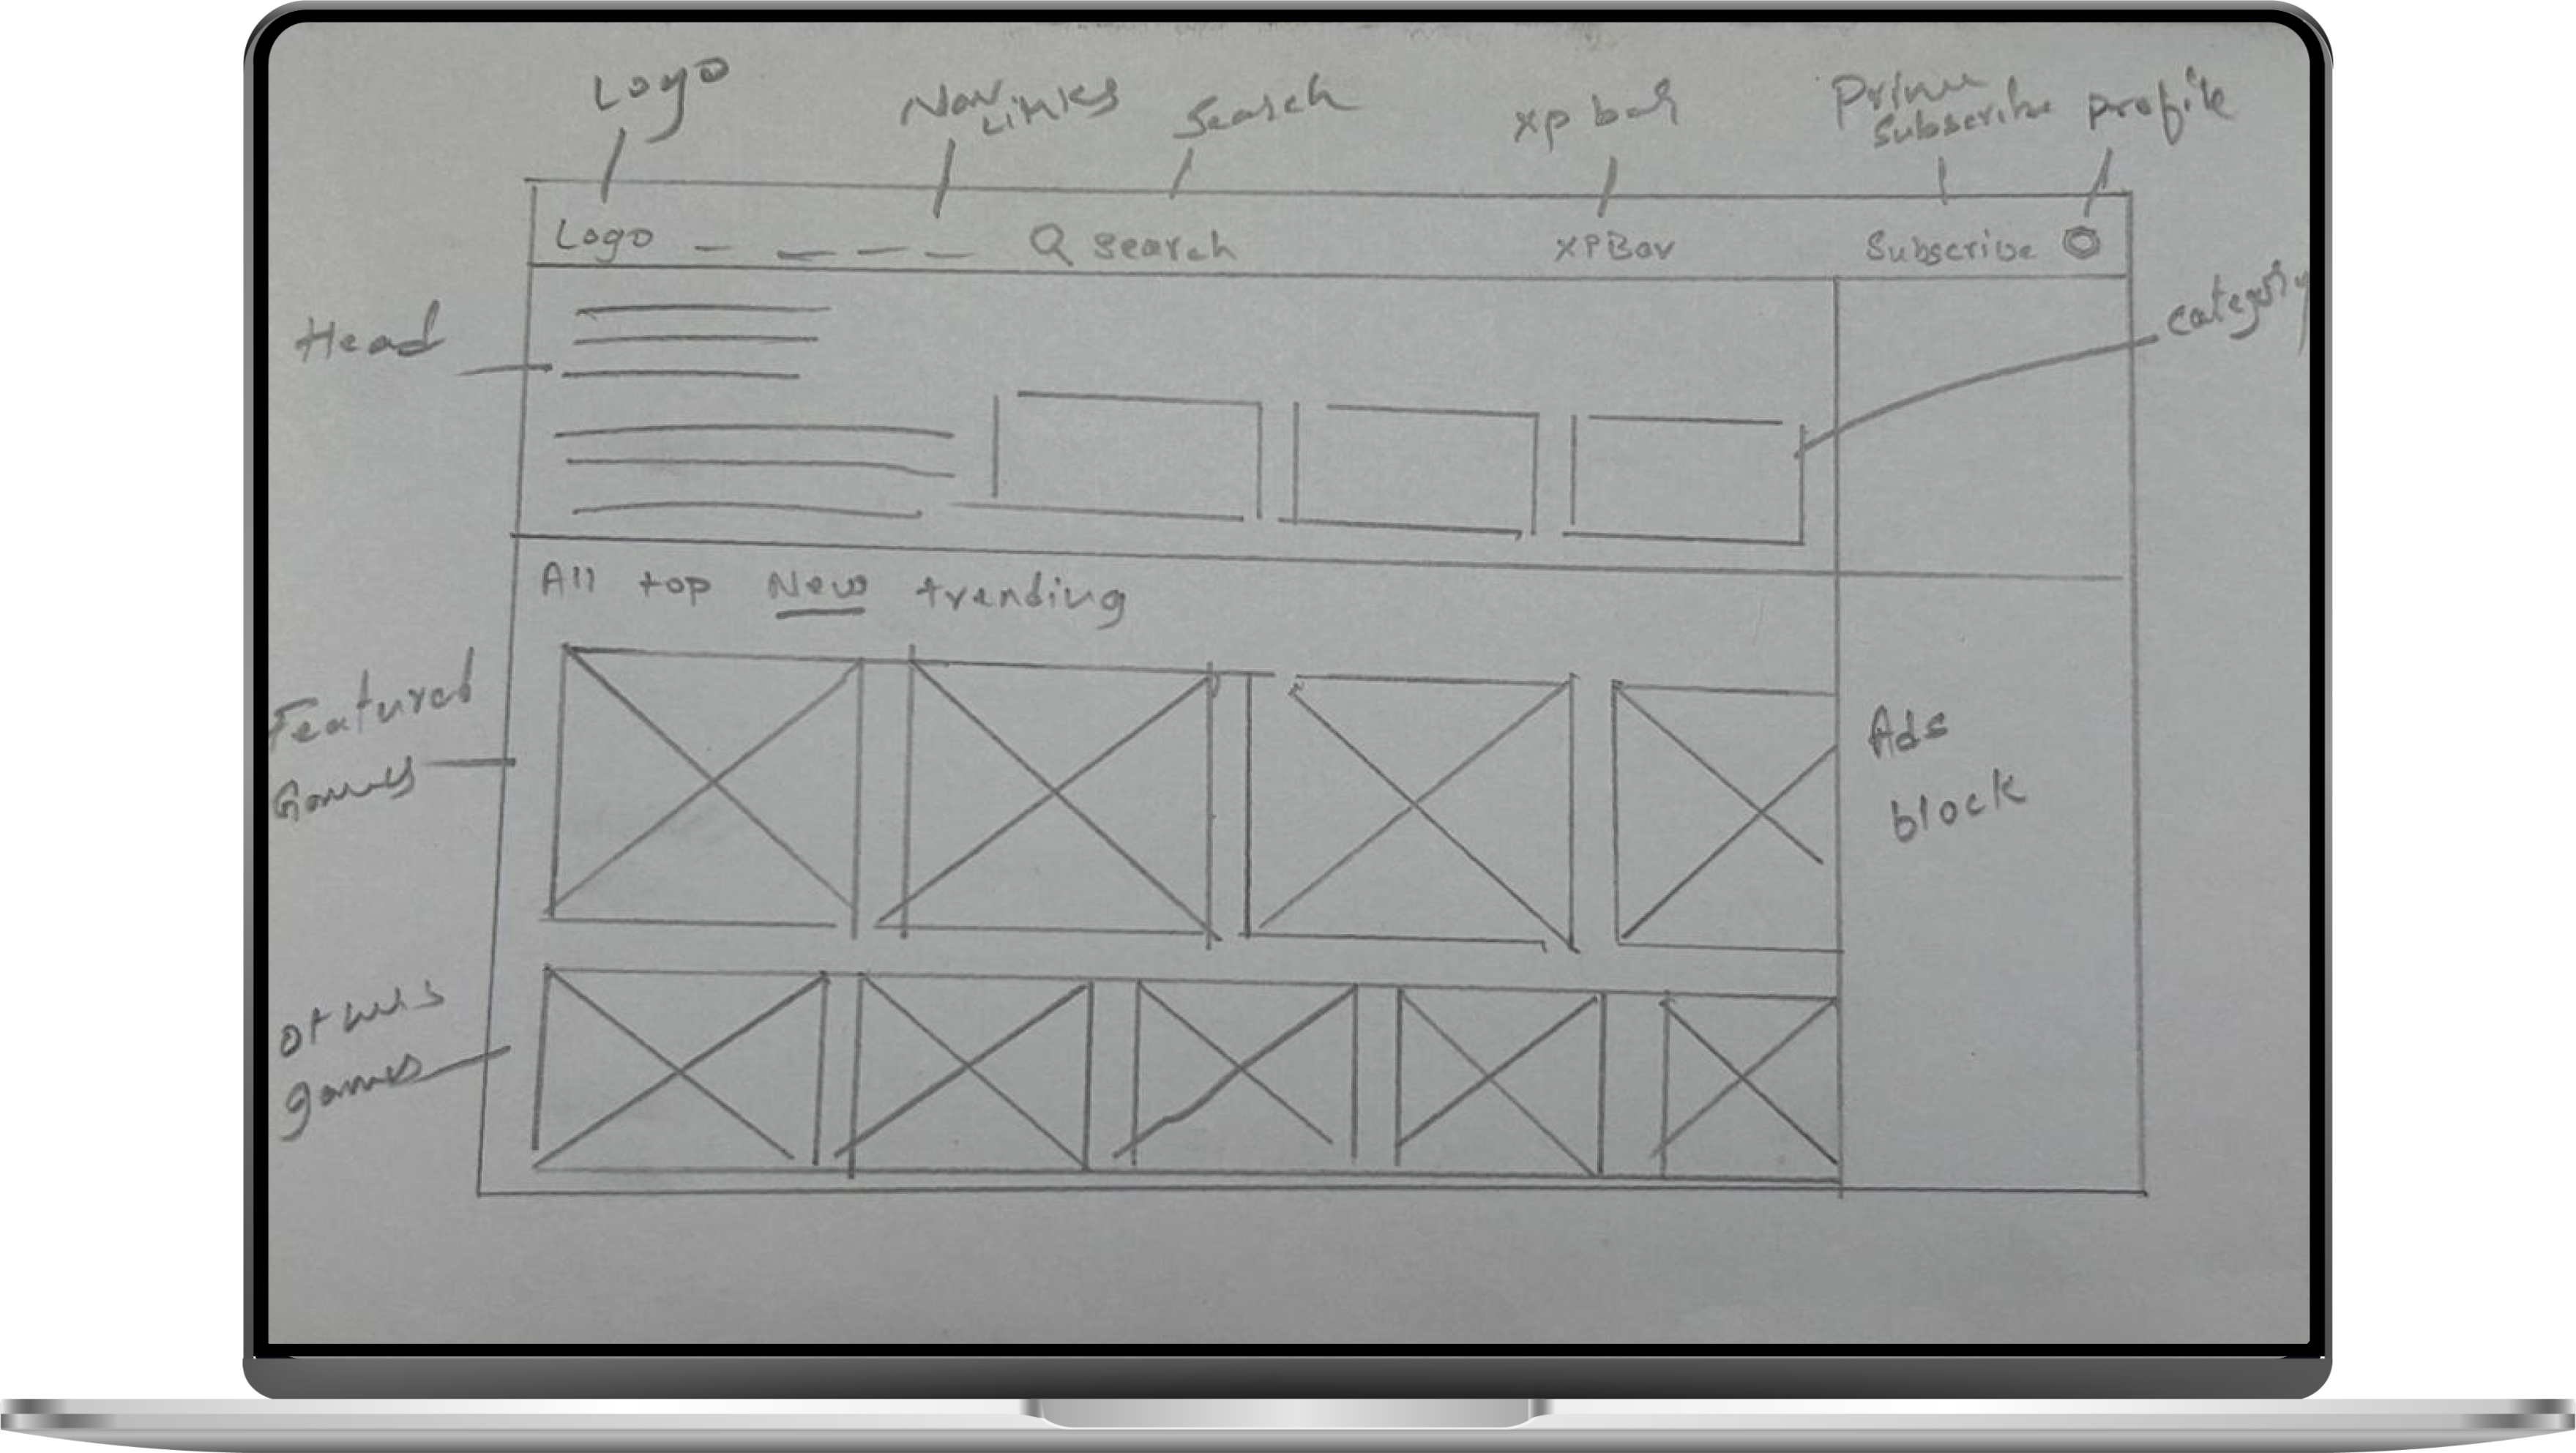 Logo
Nav Links
Search
xp bar
Prime
Subscribe
profile
Logo
Q search
XPBar
Subscribe
Head
category
All top New trending
Featured
Games
Ads
block
Others
games